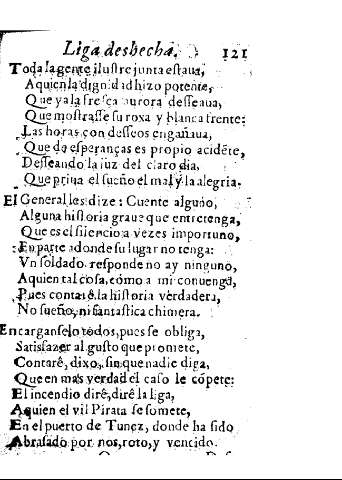 Liga deshecha. 121
Toda la gente ilustre junta estaua,
A quien la dignidad hizo potente,
Que ya la fresca aurora desseaua,
Que mostrasse su roxa y blanca frente:
Las horas con desseos engañaua,
Que de esperanças es propio acidẽte,
Desseando la luz del claro dia,
Que priua el sueño el mal y la alegria.
El General les dize: Cuente alguno,
Alguna historia graue que entretenga,
Que es el silencio a vezes importuno,
En parte adonde su lugar no tenga:
Vn soldado responde no ay ninguno,
A quien tal cosa, como a mi conuenga,
Pues contarè la historia verdadera,
No sueño, ni fantastica chimera.
Encarganselo todos, pues se obliga,
Satisfazer al gusto que promete,
Contarè, dixo, sin que nadie diga,
Que en mas verdad el caso le cõpete:
El incendio dirè, dirè la liga,
A quien el vil Pirata se somete,
En el puerto de Tunez, donde ha sido
Abrasado por nos, roto, y vencido.